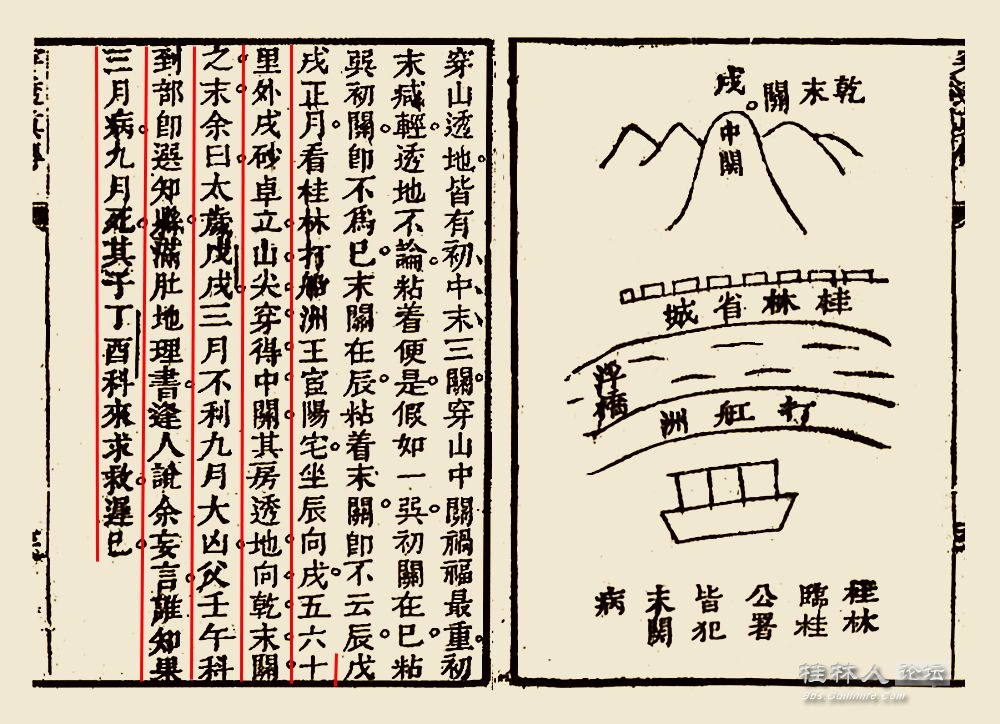 乾末關
戌
中關
桂林省城
浮橋
打舡洲
桂林
臨桂
公署
皆犯
末關
病
穿山透地皆有初中末三關穿山中關禍福最重初
末减輕透地不論粘着便是假如一巽初關在巳粘
巽初關卽不爲巳末關在辰粘着末關卽不云辰戊
戌正月看桂林打船洲王宦陽宅坐辰向戌五六十
里外戌砂卓立山尖穿得中關其房透地向乾末關
之末余曰太歲戊戌三月不利九月大凶父壬午科
到部卽選知縣滿肚地理書逢人說余妄言誰知果
三月病九月死其子丁酉科來求救遲巳
桂林人 论坛
bbs.Guilinlife.com